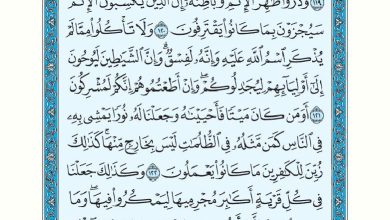 وَذَرُوا۟ ظَٰهِرَ ٱلْإِثْمِ وَبَاطِنَهُۥٓ إِنَّ ٱلَّذِينَ يَكْسِبُونَ ٱلْإِثْمَ
سَيُجْزَوْنَ بِمَا كَانُوا۟ يَقْتَرِفُونَ ١٢٠ وَلَا تَأْكُلُوا۟ مِمَّا لَمْ
يُذْكَرِ ٱسْمُ ٱللَّهِ عَلَيْهِ وَإِنَّهُۥ لَفِسْقٌ وَإِنَّ ٱلشَّيَٰطِينَ لَيُوحُونَ
إِلَىٰٓ أَوْلِيَآئِهِمْ لِيُجَٰدِلُوكُمْ وَإِنْ أَطَعْتُمُوهُمْ إِنَّكُمْ لَمُشْرِكُونَ
١٢١ أَوَمَن كَانَ مَيْتًا فَأَحْيَيْنَٰهُ وَجَعَلْنَا لَهُۥ نُورًا يَمْشِى بِهِۦ
فِى ٱلنَّاسِ كَمَن مَّثَلُهُۥ فِى ٱلظُّلُمَٰتِ لَيْسَ بِخَارِجٍ مِّنْهَا كَذَٰلِكَ
زُيِّنَ لِلْكَٰفِرِينَ مَا كَانُوا۟ يَعْمَلُونَ ١٢٢ وَكَذَٰلِكَ جَعَلْنَا
فِى كُلِّ قَرْيَةٍ أَكَٰبِرَ مُجْرِمِيهَا لِيَمْكُرُوا۟ فِيهَا وَمَا